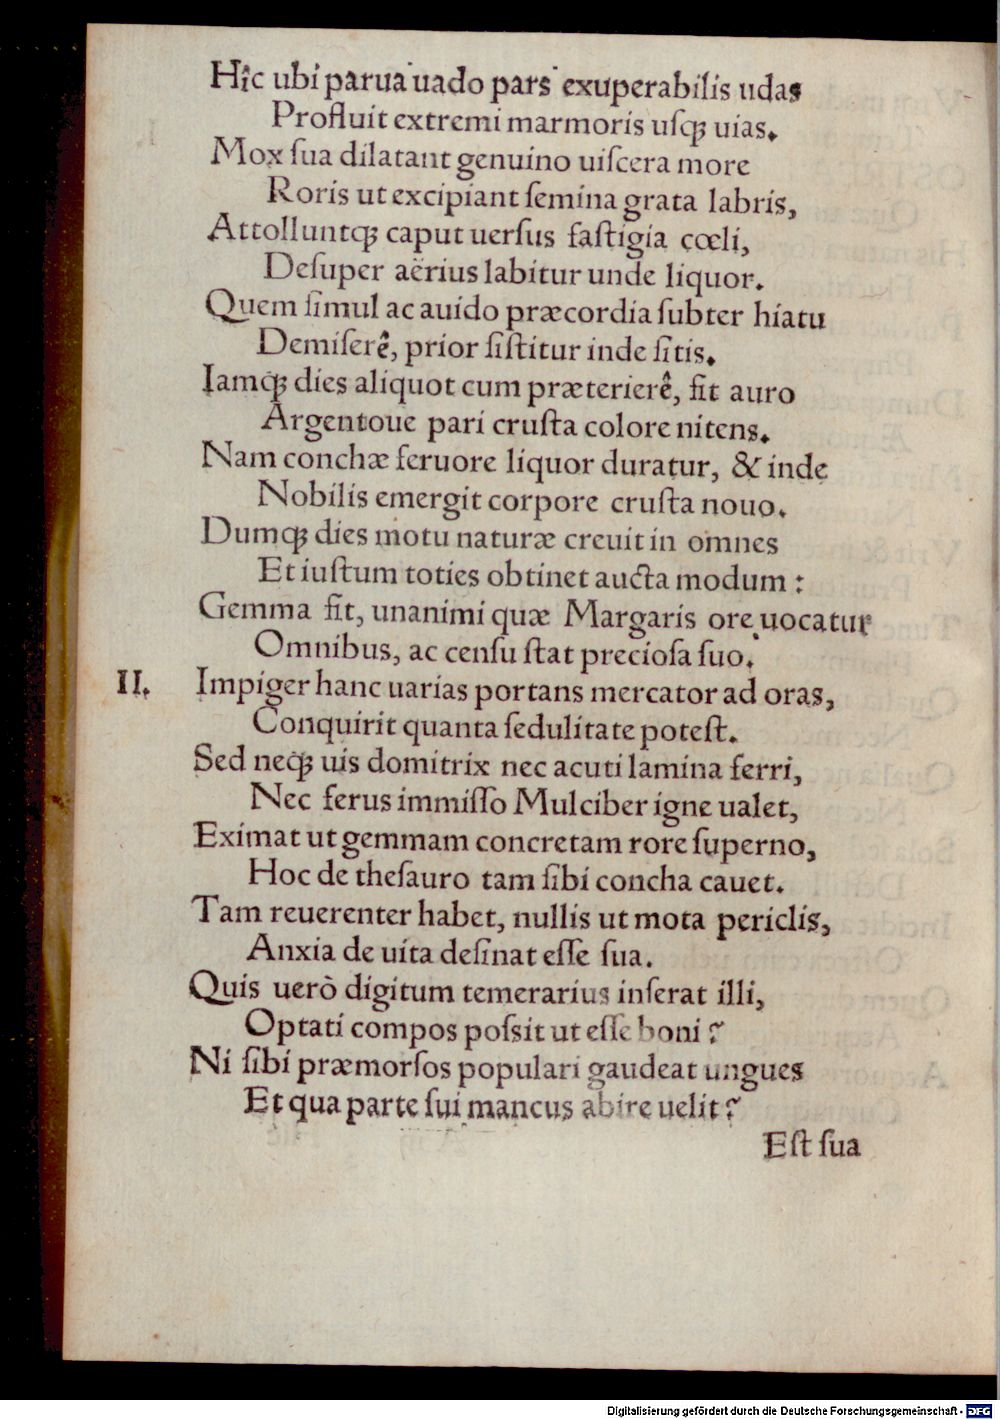 Hîc ubi parua uado pars exuperabilis udas
Profluit extremi marmoris uſqꝫ uias.
Mox ſua dilatant genuino uiſcera more
Roris ut excipiant ſemina grata labris,
Attolluntqꝫ caput uerſus faſtigia cœli,
Deſuper aërius labitur unde liquor.
Quem ſimul ac auido præcordia ſubter hiatu
Demiſerê, prior ſiſtitur inde ſitis.
Iamqꝫ dies aliquot cum præterierê, fit auro
Argentoue pari cruſta colore nitens.
Nam conchæ feruore liquor duratur, & inde
Nobilis emergit corpore cruſta nouo.
Dumqꝫ dies motu naturæ creuit in omnes
Et iuſtum toties obtinet aucta modum:
Gemma fit, unanimi quæ Margaris ore uocatur
Omnibus, ac cenſu ſtat precioſa ſuo.
II. Impiger hanc uarias portans mercator ad oras,
Conquirit quanta ſedulitate poteſt.
Sed neqꝫ uis domitrix nec acuti lamina ferri,
Nec ferus immiſſo Mulciber igne ualet,
Eximat ut gemmam concretam rore ſuperno,
Hoc de theſauro tam ſibi concha cauet.
Tam reuerenter habet, nullis ut mota periclis,
Anxia de uita deſinat eſſe ſua.
Quis uerò digitum temerarius inſerat illi,
Optati compos poſsit ut eſſe boni?
Ni ſibi præmorſos populari gaudeat ungues
Et qua parte ſui mancus abire uelit?
Eſt ſua
Digitalisierung gefördert durch die Deutsche Forschungsgemeinschaft - DFG